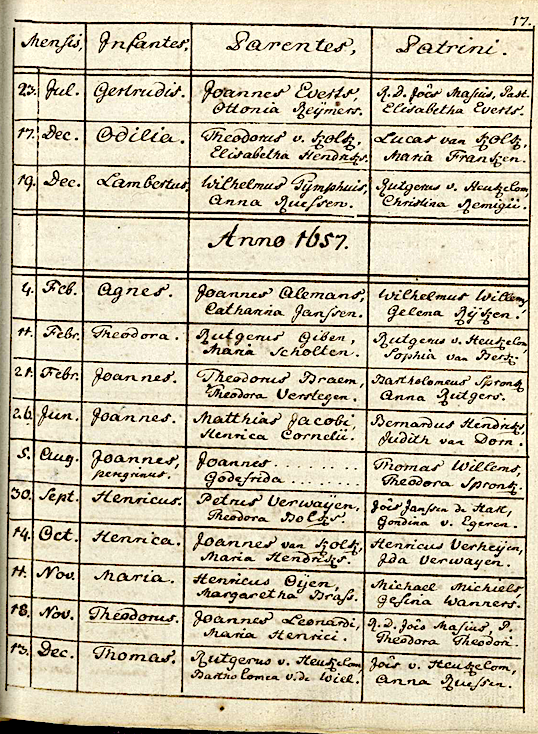 17.
Mensis, Infantes, Parentes, Patrini.
23. Jul. Gertrudis. Joannes Everts, R. D. Joẽs Masius, Past.
Ottonia Reijmers. Elisabetha Everts.
17. Dec. Odilia. Theodorus v. Kolk, Lucas van Kolk,
Elisabetha Hendriks. Maria Franken.
19. Dec. Lambertus, Wilhelmus Tijmphuis, Rutgerus v. Heukelom,
Anna Ruessen. Christina Remigii.
Anno 1657.
4. Feb. Agnes. Joannes Alemans, Wilhelmus Willems,
Catharina Janssen. Gelena Rijken.
11. Febr. Theodora. Rutgerus Giben, Rutgerus v. Heukelom,
Maria Scholten. Sophia van Berk.
21. Febr. Joannes. Theodorus Braem, Bartholomeus Spronk,
Theodora Verstegen. Anna Rutgers.
26. Jun. Joannes. Matthias Jacobi, Bernardus Hendriks,
Henrica Cornelii. Judith van Dorn.
5. Aug. Joannes, Joannes ........ Thomas Willems,
peregrinus. Godefrida ........ Theodora Spronk.
30. Sept. Henricus. Petrus Verwaijen. Joẽs Janssen de Hast,
Theodora Bolks. Gondina v. Egeren.
14. Oct. Henrica. Joannes van Kolk, Henricus Verheijen,
Maria Hendriks. Ida Verwayen.
11. Nov. Maria. Henricus Oijen, Michael Michiels,
Margaretha Brass. Gesina Wanners.
18. Nov. Theodorus. Joannes Leonardi, R. D. Joẽs Masius P.
Maria Henrici. Theodora Theodori.
13. Dec. Thomas. Rutgerus v. Heukelom Joẽs v. Heukelom,
Bartholomea v. de Wiel. Anna Ruessen.